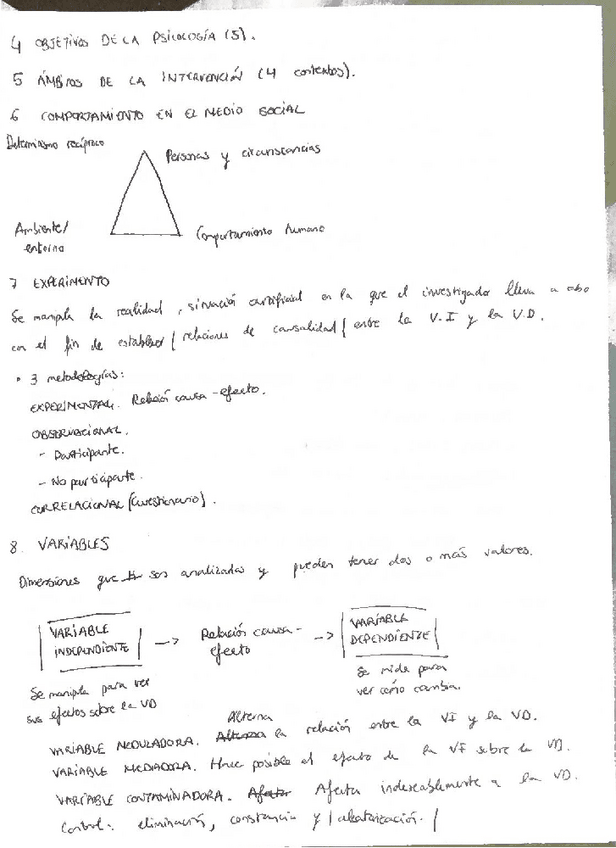 4 OBJETIVOS DE LA PSICOLOGÍA (5).
5 ÁMBITOS DE LA INTERVENCIÓN (4 contextos).
6 COMPORTAMIENTO EN EL MEDIO SOCIAL
Determinismo recíproco
Personas y circunstancias
Ambiente/
entorno
Comportamiento humano
7 EXPERIMENTO
Se manipula la realidad, situación artificial en la que el investigador lleva a cabo
con el fin de establecer / relaciones de causalidad / entre la V.I y la V.D.
• 3 metodologías:
EXPERIMENTAL. Relación causa-efecto.
OBSERVACIONAL.
- Participante.
- No participante.
CORRELACIONAL (Cuestionario).
8. VARIABLES
Dimensiones que son analizadas y pueden tener dos o más valores.
| VARIABLE INDEPENDIENTE | -> Relación causa-efecto -> | VARIABLE DEPENDIENTE |
Se manipula para ver
sus efectos sobre la VD
Se mide para
ver cómo cambia.
VARIABLE MODULADORA. Altera la relación entre la VI y la VD.
VARIABLE MEDIADORA. Hace posible el efecto de la VI sobre la VD.
VARIABLE CONTAMINADORA. Afecta indeseablemente a la VD.
Control: eliminación, constancia y / aleatorización. /